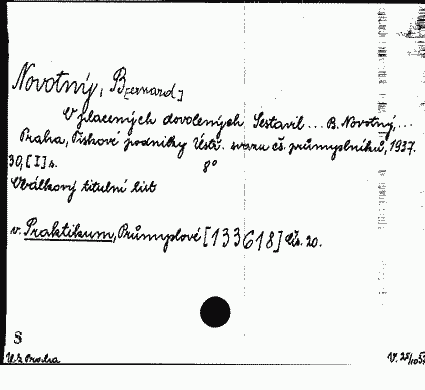 Novotný, B[ernard]
O placených dovolených Sestavil ... B. Novotný, ...
Praha, Tiskové podniky Ústř. svazu čs. průmyslníků, 1937.
30, [I] s. 8°
Obálkový titulní list
v. Praktikum, Průmyslové [133618] čís. 20.
S
U.K. Praha V. 25/10 5